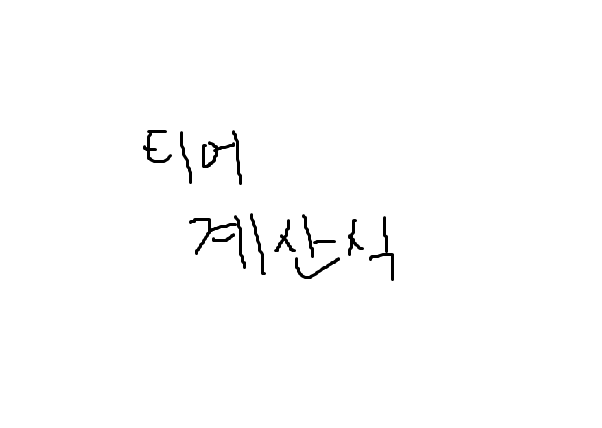 티어
계산식